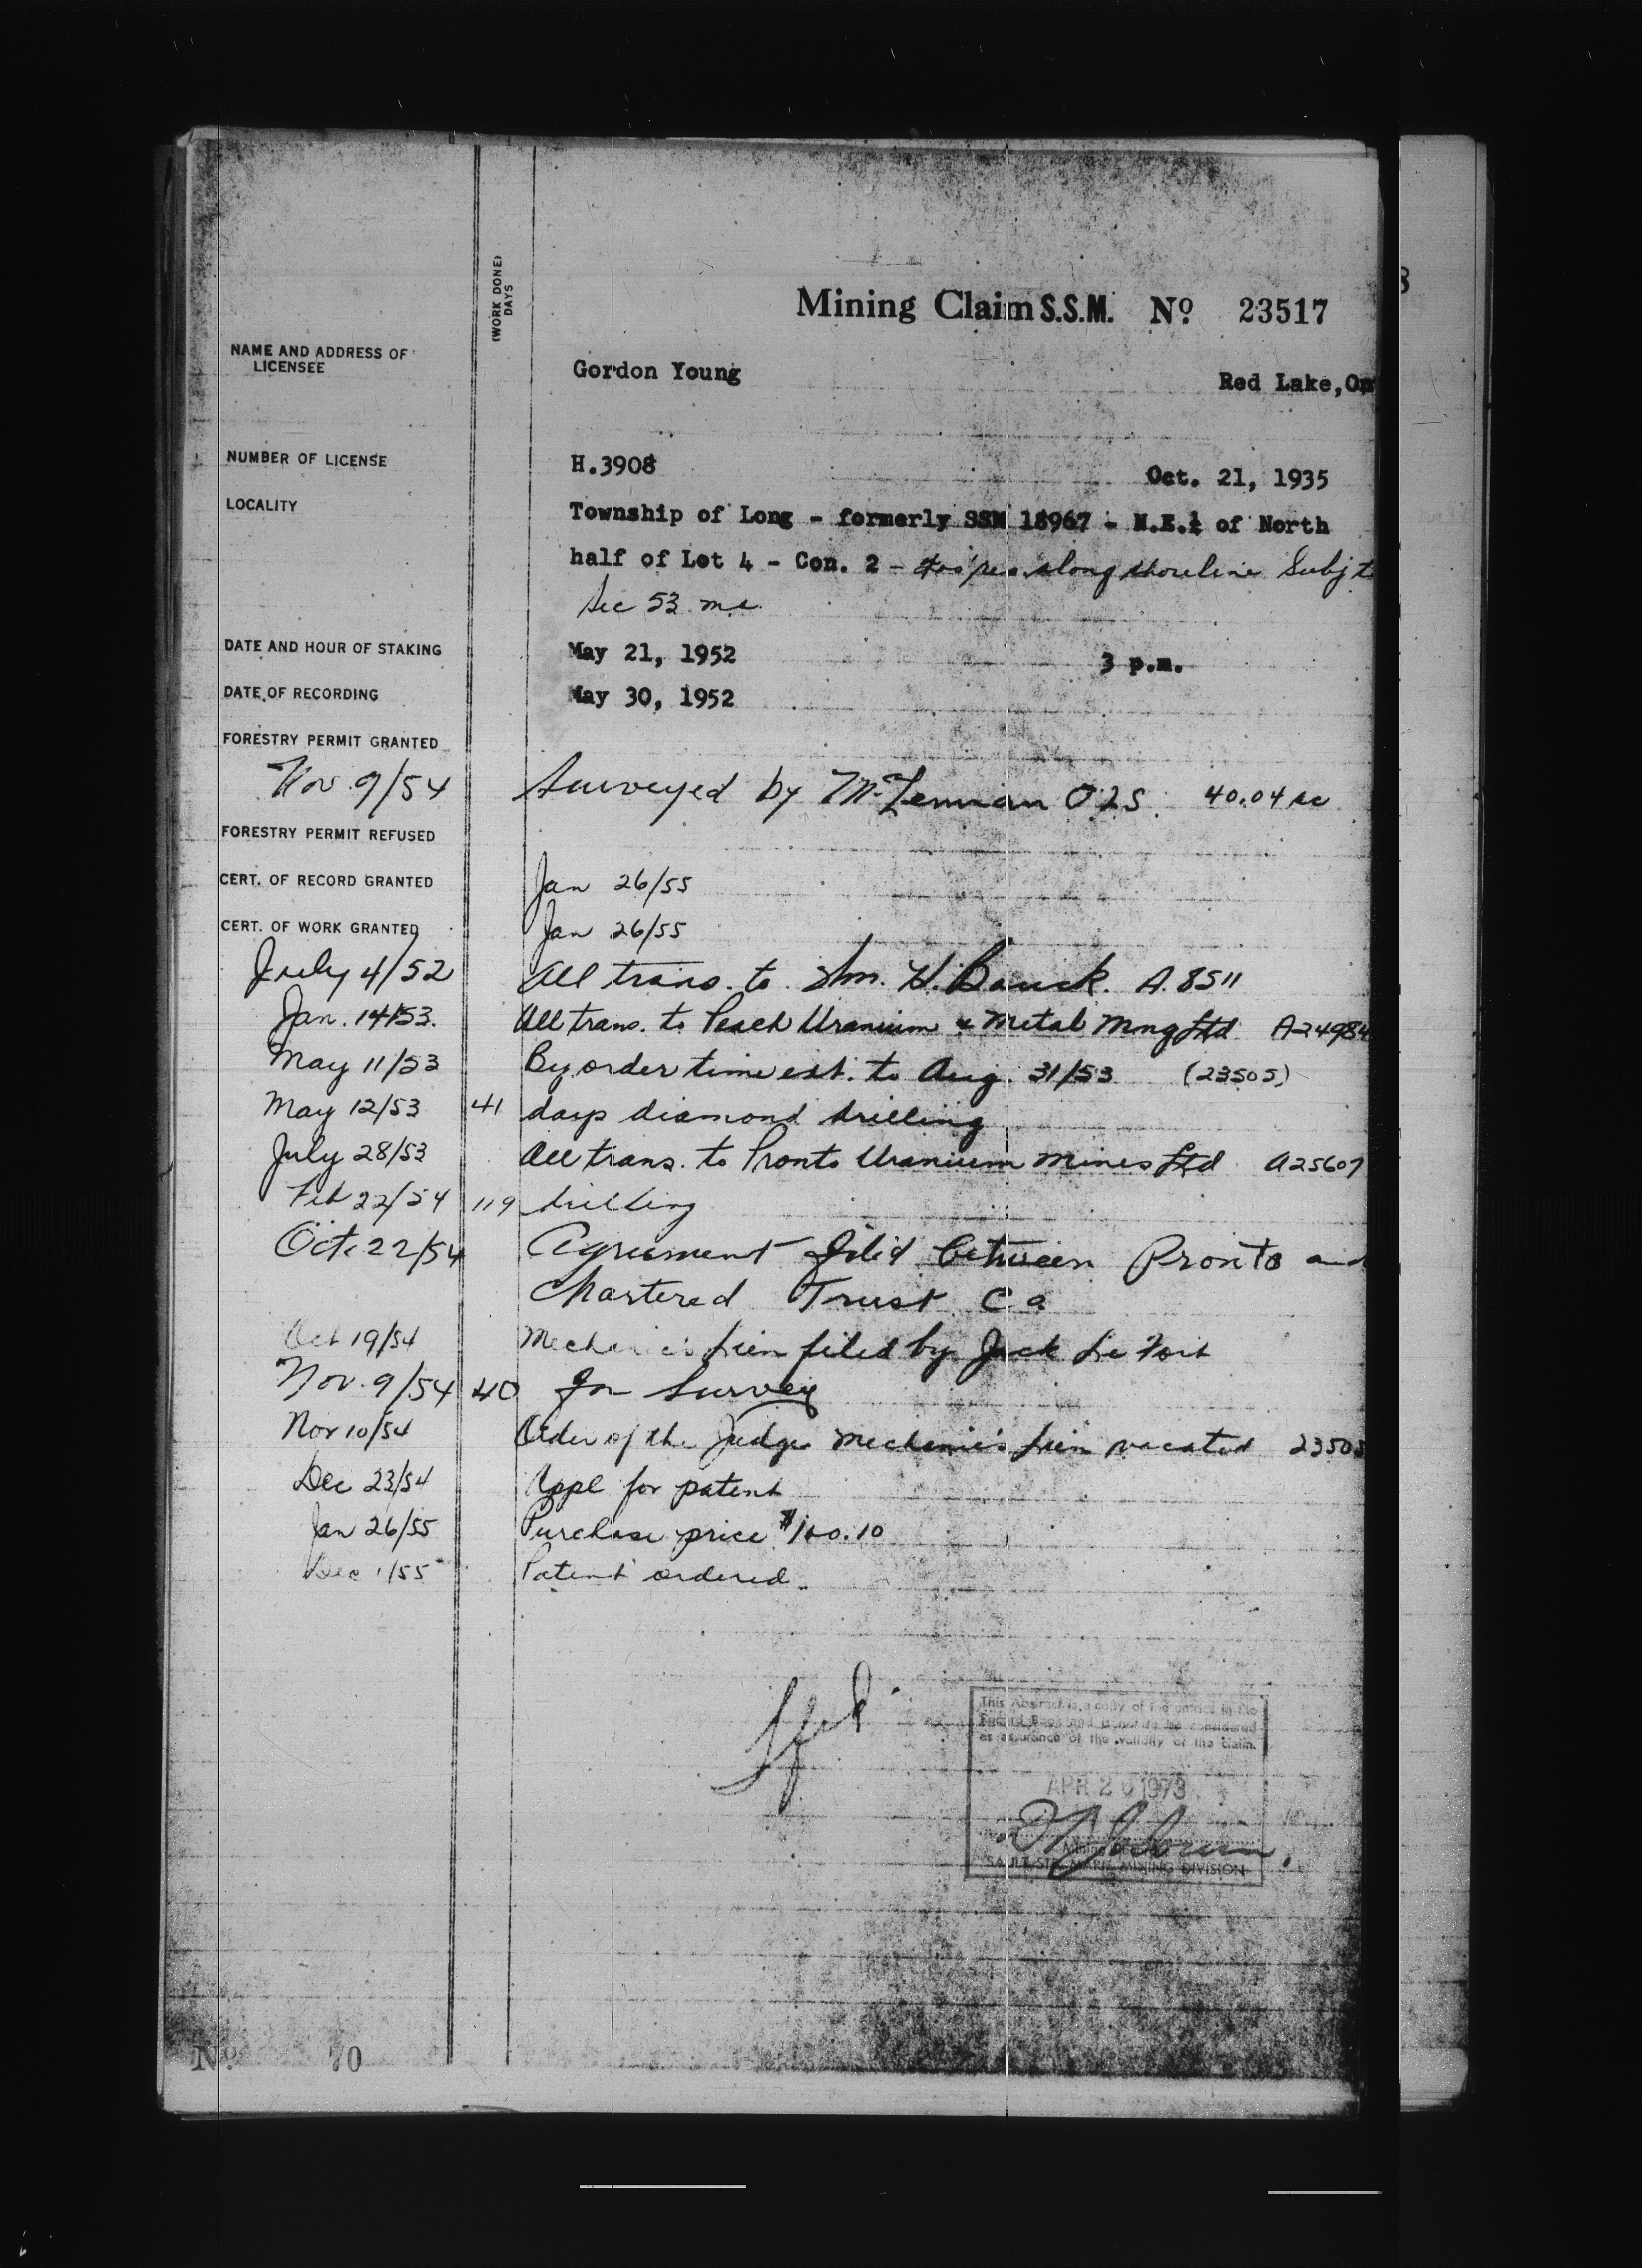 (WORK DONE) DAYS
Mining Claim S.S.M. No 23517
NAME AND ADDRESS OF LICENSEE
Gordon Young Red Lake, On
NUMBER OF LICENSE H.3908 Oct. 21, 1935
LOCALITY Township of Long - formerly SSM 18967 - N.E.¼ of North
half of Lot 4 - Con. 2 - along shoreline Subj t
Sec 53 m.a.
DATE AND HOUR OF STAKING May 21, 1952 3 p.m.
DATE OF RECORDING May 30, 1952
FORESTRY PERMIT GRANTED
Nov. 9/54 Surveyed by McLennan OLS. 40.04 ac
FORESTRY PERMIT REFUSED
CERT. OF RECORD GRANTED Jan 26/55
CERT. OF WORK GRANTED Jan 26/55
July 4/52 All trans. to Wm. H. Bouck. A.8511
Jan. 14/53. All trans. to Peach Uranium & Metal Mng Ltd A24984
May 11/53 By order time ext. to Aug. 31/53 (23505)
May 12/53 41 days diamond drilling
July 28/53 All trans. to Pronto Uranium Mines Ltd A25607
Feb 22/54 119 drilling
Oct. 22/54 Agreement filed between Pronto and
Chartered Trust Co
Oct 19/54 Mechanic's Lien filed by Jack Le Fort
Nov. 9/54 40 for Survey
Nov 10/54 Order of the Judge Mechanic's Lien vacated 23505
Dec 23/54 Appl for patent
Jan 26/55 Purchase price $100.10
Dec 1/55 Patent ordered.
This Abstract is a copy of the entries in the
Record Book and is not to be considered
as assurance of the validity of the claim.
APR 26 1973
SAULT STE. MARIE MINING DIVISION
No 70